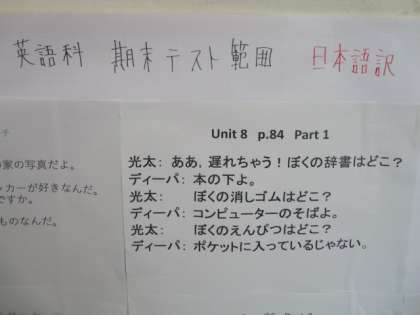 英語科 期末テスト範囲 日本語訳
子
家の写真だよ。
ッカーが好きなんだ。
ですか。
ものなんだ。
Unit 8 p.84 Part 1
光太: ああ, 遅れちゃう! ぼくの辞書はどこ?
ディーパ: 本の下よ。
光太: ぼくの消しゴムはどこ?
ディーパ: コンピューターのそばよ。
光太: ぼくのえんぴつはどこ?
ディーパ: ポケットに入っているじゃない。